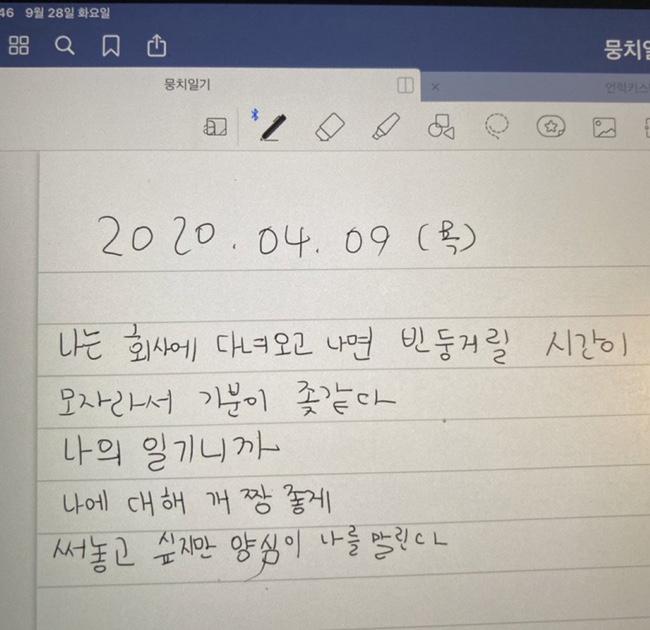 46 9월 28일 화요일
뭉치일
뭉치일기
2020.04.09 (목)
나는 회사에 다녀오고 나면 빈둥거릴 시간이
모자라서 기분이 좆같다
나의 일기니까
나에 대해 개 짱 좋게
써놓고 싶지만 양심이 나를 말린다